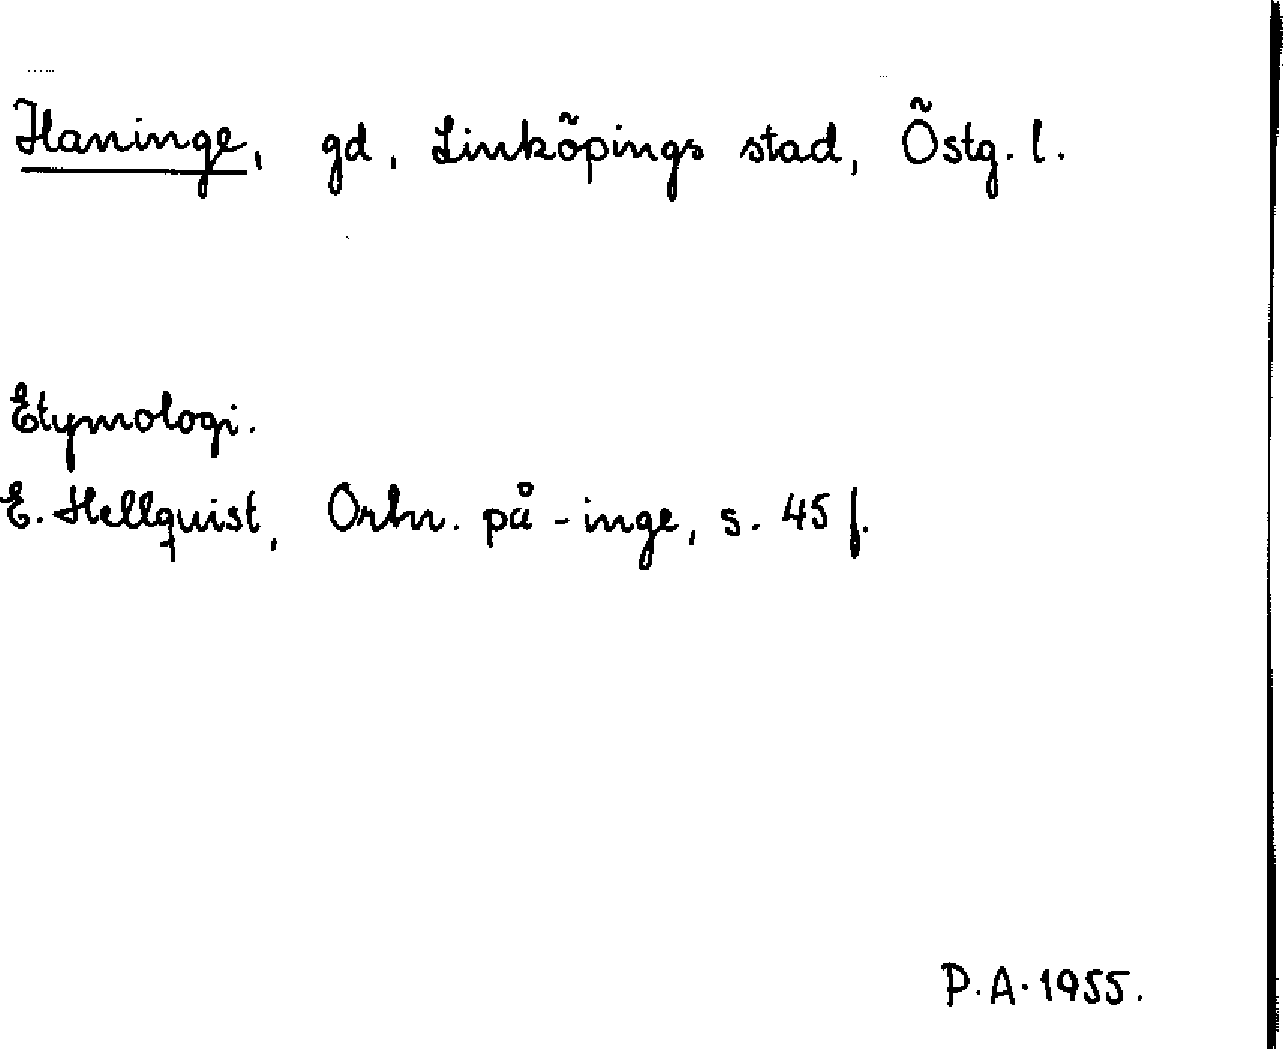 Haninge, gd, Linköpings stad, Östg. l.
Etymologi.
E. Hellquist, Ortn. på -inge, s. 45 f.
P.A. 1955.